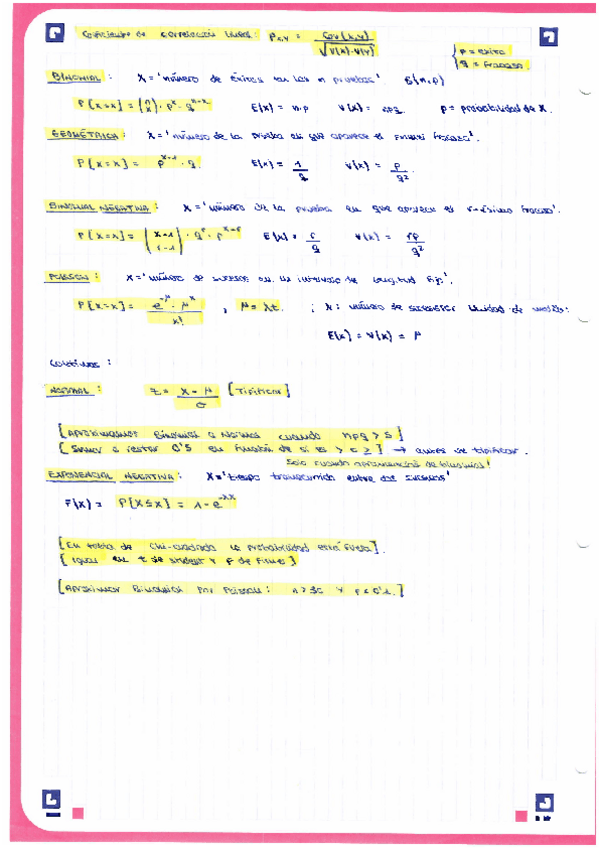 Coeficiente de correlación lineal: ρx,y = Cov(x,y) / √V(x)·V(y)
p = éxito
q = fracaso
BINOMIAL: X = 'número de éxitos en las n pruebas' B(n,p)
P[X=x] = (n x) · p^x · q^(n-x) E(x) = n·p V(x) = npq p = probabilidad de X.
GEOMÉTRICA: X = 'número de la prueba en que aparece el primer fracaso'.
P[X=x] = p^(x-1) · q. E(x) = 1/q V(x) = p/q².
BINOMIAL NEGATIVA: X = 'número de la prueba en que aparece el r-ésimo fracaso'.
P[X=x] = (x-1 r-1) · q^r · p^(x-r) E(x) = r/q V(x) = rp/q²
POISSON: X = 'número de sucesos en un intervalo de longitud fija'.
P[X=x] = e^-μ · μ^x / x! , μ = λt. ; λ: número de sucesos unidad de medida:
E(x) = V(x) = μ
Continuas:
NORMAL: z = x - μ / σ [Tipificar]
[Aproximamos Binomial a Normal cuando npq > 5]
[Sumar o restar 0'5 en función de si es > o ≥] → antes de tipificar.
Solo cuando aproximación de binomial!
EXPONENCIAL NEGATIVA: X = 'tiempo transcurrido entre dos sucesos'
F(x) = P[X≤x] = 1 - e^-λx
[En tabla de Chi-cuadrado la probabilidad está fuera].
[Igual en t de student y F de Fisher]
[Aproximar Binomial por Poisson: n > 30 y p < 0'1.]